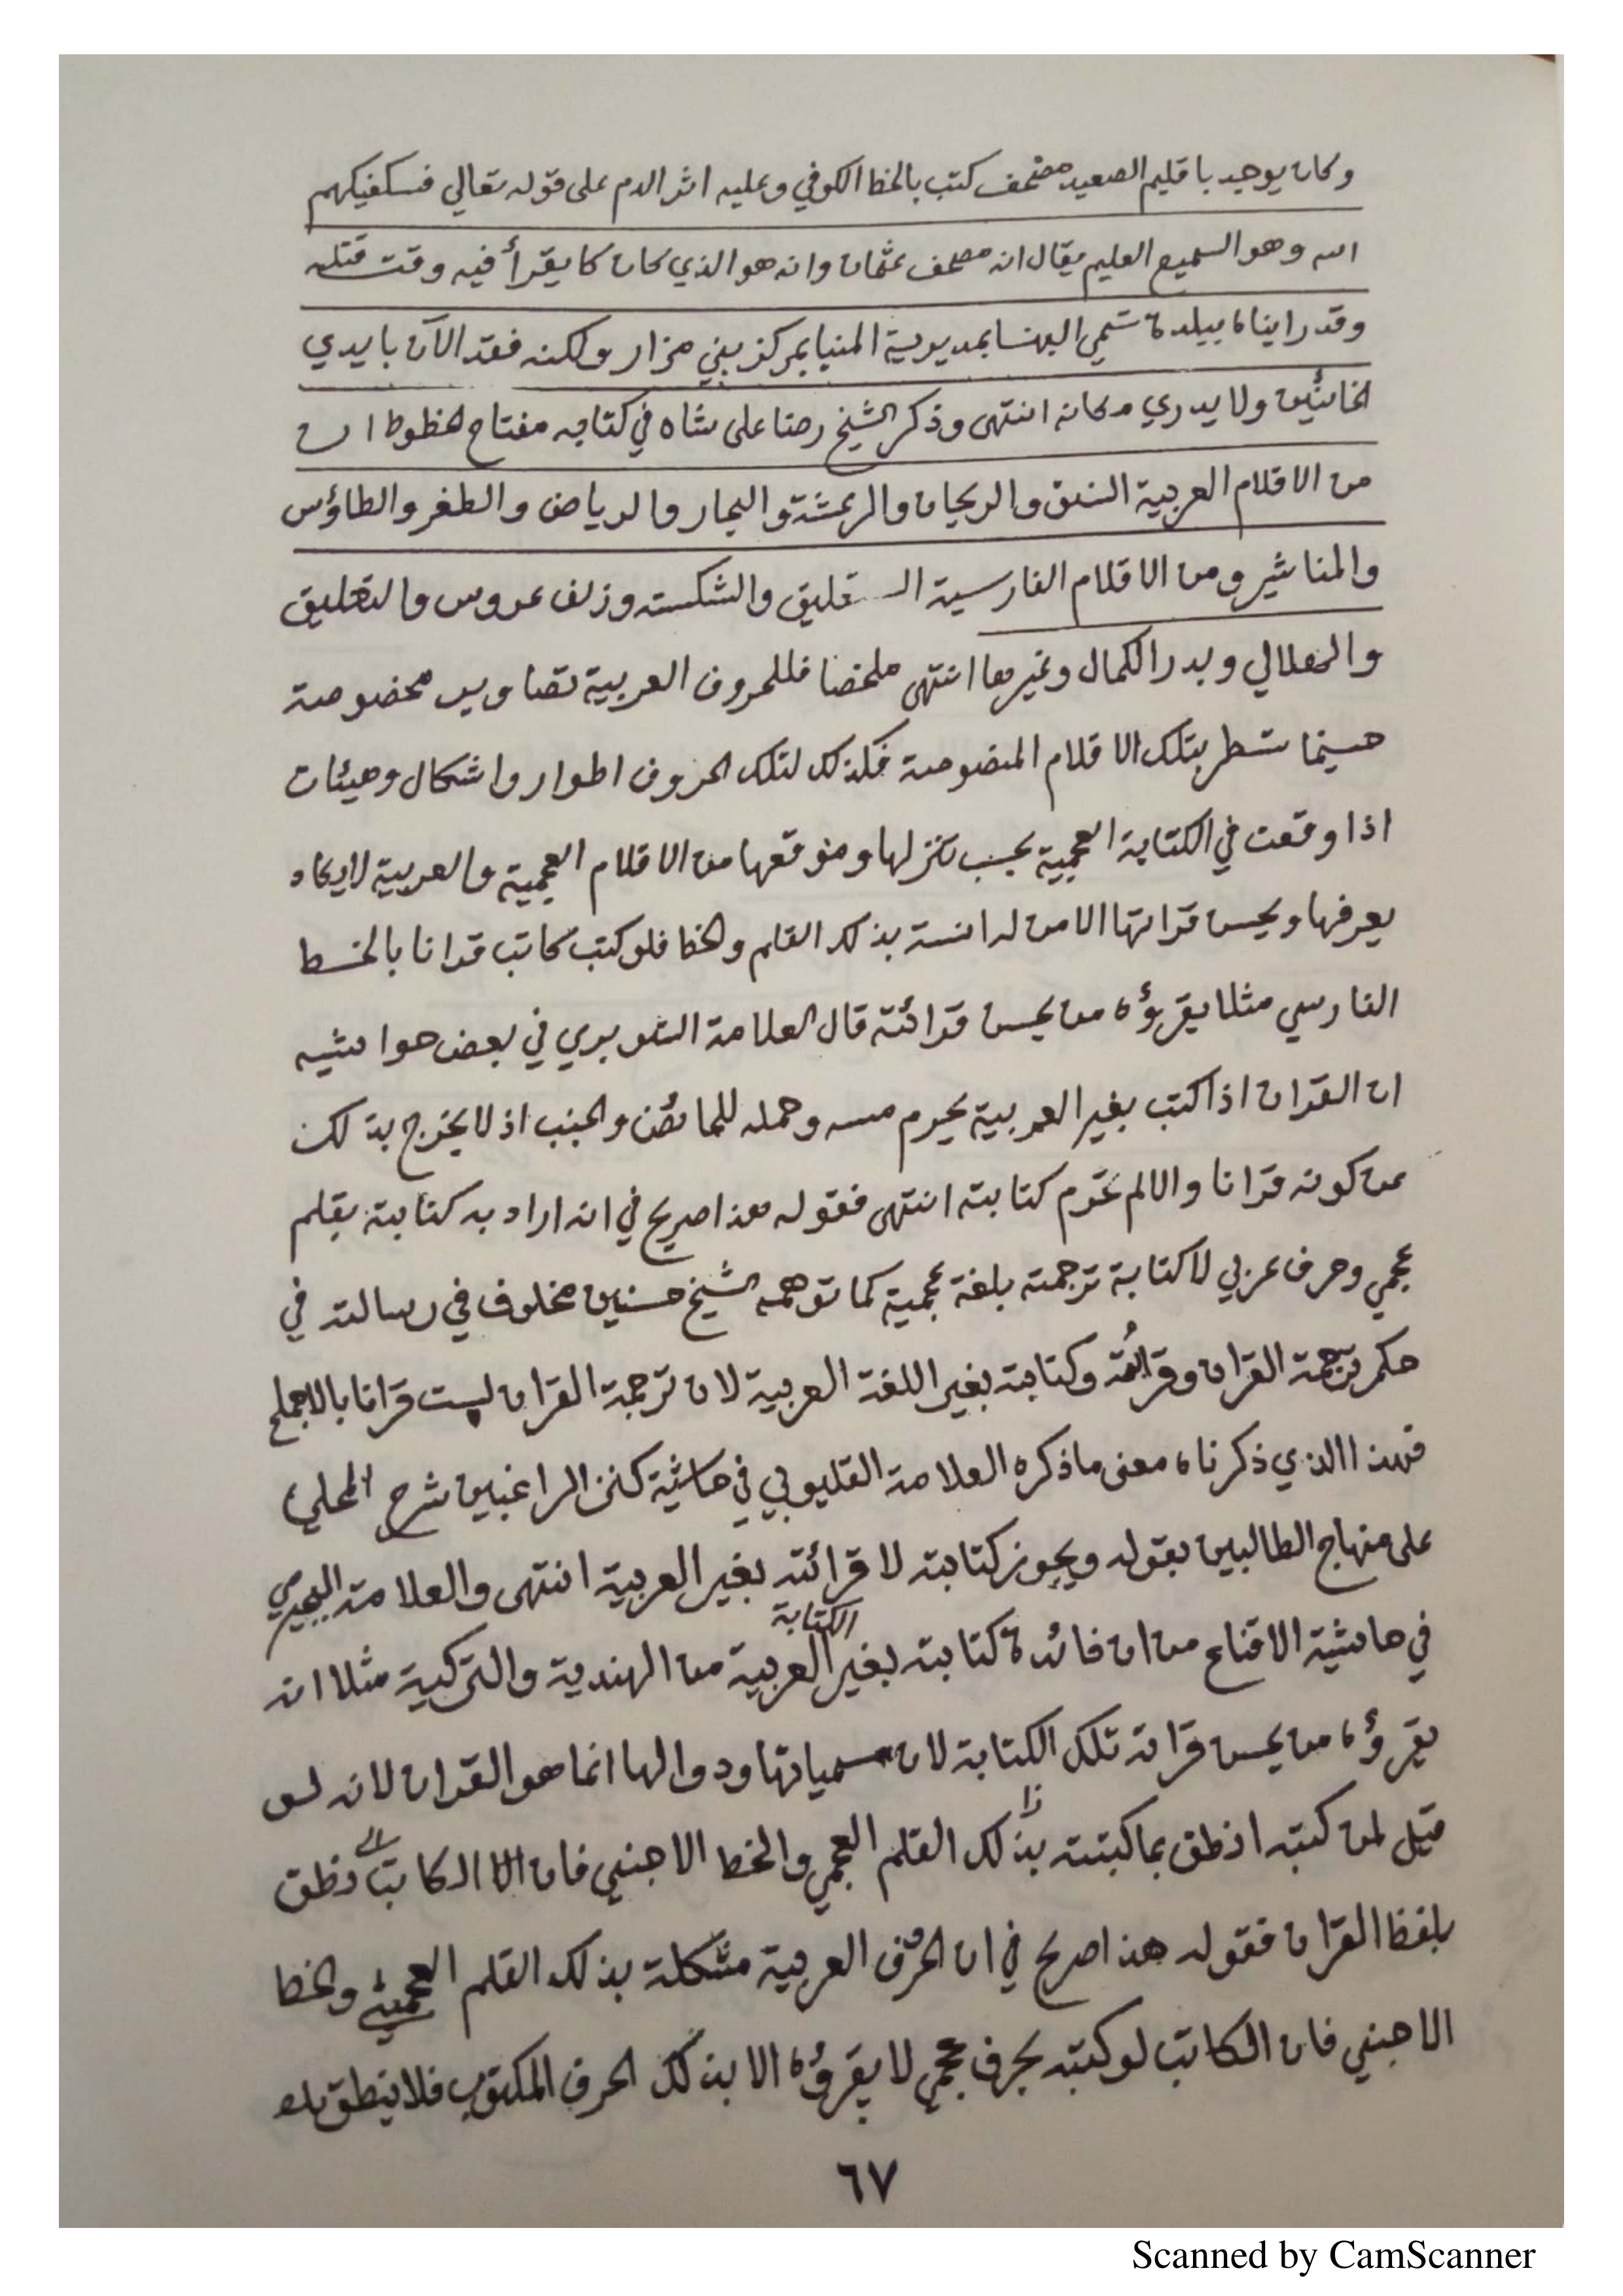 وكان يوجد باقليم الصعيد مصحف كتب بالخط الكوفي وعليه اثر الدم على قوله تعالي فسكفيكهم
الله وهو السميع العليم يقال انه مصحف عثمان وانه هو الذي كان كا يقرأ فيه وقت قتله
وقد رايناه ببلدة تسمي البهنسا بمديرية المنيا بمركز بني مزار ولكنه فقد الآن بايدي
الخائنين ولا يدري مكانه انتهى وذكر الشيخ رضا على شاه في كتابه مفتاح الخطوط ان
من الاقلام العربية النسق والريحان والرعشة والبحار والرياض والطغر والطاؤس
والمناشير ومن الاقلام الفارسية الستعليق والشكسته وزلف عروس والتعليق
والهلالي وبدر الكمال وغيرها انتهى ملخصا فللحروف العربية تصاوير مخصوصة
حسبما تسطر بتلك الاقلام المنصوصة فكذلك لتلك الحروف اطوار واشكال وهيئات
اذا وقعت في الكتابة العجمية بحسب تنزلها وموقعها من الاقلام العجمية والعربية لايكاد
يعرفها ويحسن قراتها الا من له انسة بذلك القلم والخط فلو كتب كاتب قرانا بالخط
الفارسي مثلا يقرؤه من يحسن قرائته قال العلامة الشوبري في بعض حواشيه
ان القران اذا كتب بغير العربية يحرم مسه وحمله للحائض والجنب اذ لا يخرج بذلك
عن كونه قرانا والا لم تحرم كتابته انتهى فقوله هذا صريح في انه اراد به كتابته بقلم
عجمي وحرف عربي لا كتابة ترجمته بلغة عجمية كما توهمه الشيخ حسنين مخلوف في رسالته في
حكم ترجمة القران وقرائته وكتابته بغير اللغة العربية لان ترجمة القران ليست قرانا بالاجماع
فهذا الذي ذكرناه معنى ماذكره العلامة القليوبي في حاشية كنز الراغبين شرح المحلي
على منهاج الطالبين بقوله ويجوز كتابته لا قرائته بغير العربية انتهى والعلامة البجيرمي
في حاشية الاقناع من ان فائدة كتابته بغير الكتابة العربية من الهندية والتركية مثلا انه
يقرؤه من يحسن قراته تلك الكتابة لان مسمياتها ودوالها انما هو القران لانه لو
قيل لمن كتبه اذ نطق بما كتبته بذلك القلم العجمي والخط الاجنبي فان الكاتب نطق
بلفظ القران فقوله هذا صريح في ان الحروف العربية مشكلة بذلك القلم العجمي والخط
الاجنبي فان الكاتب لو كتبه بحرف عجمي لا يقرؤه الا بذلك الحرف المكتوب فلا ينطق بلفظ
٦٧
Scanned by CamScanner